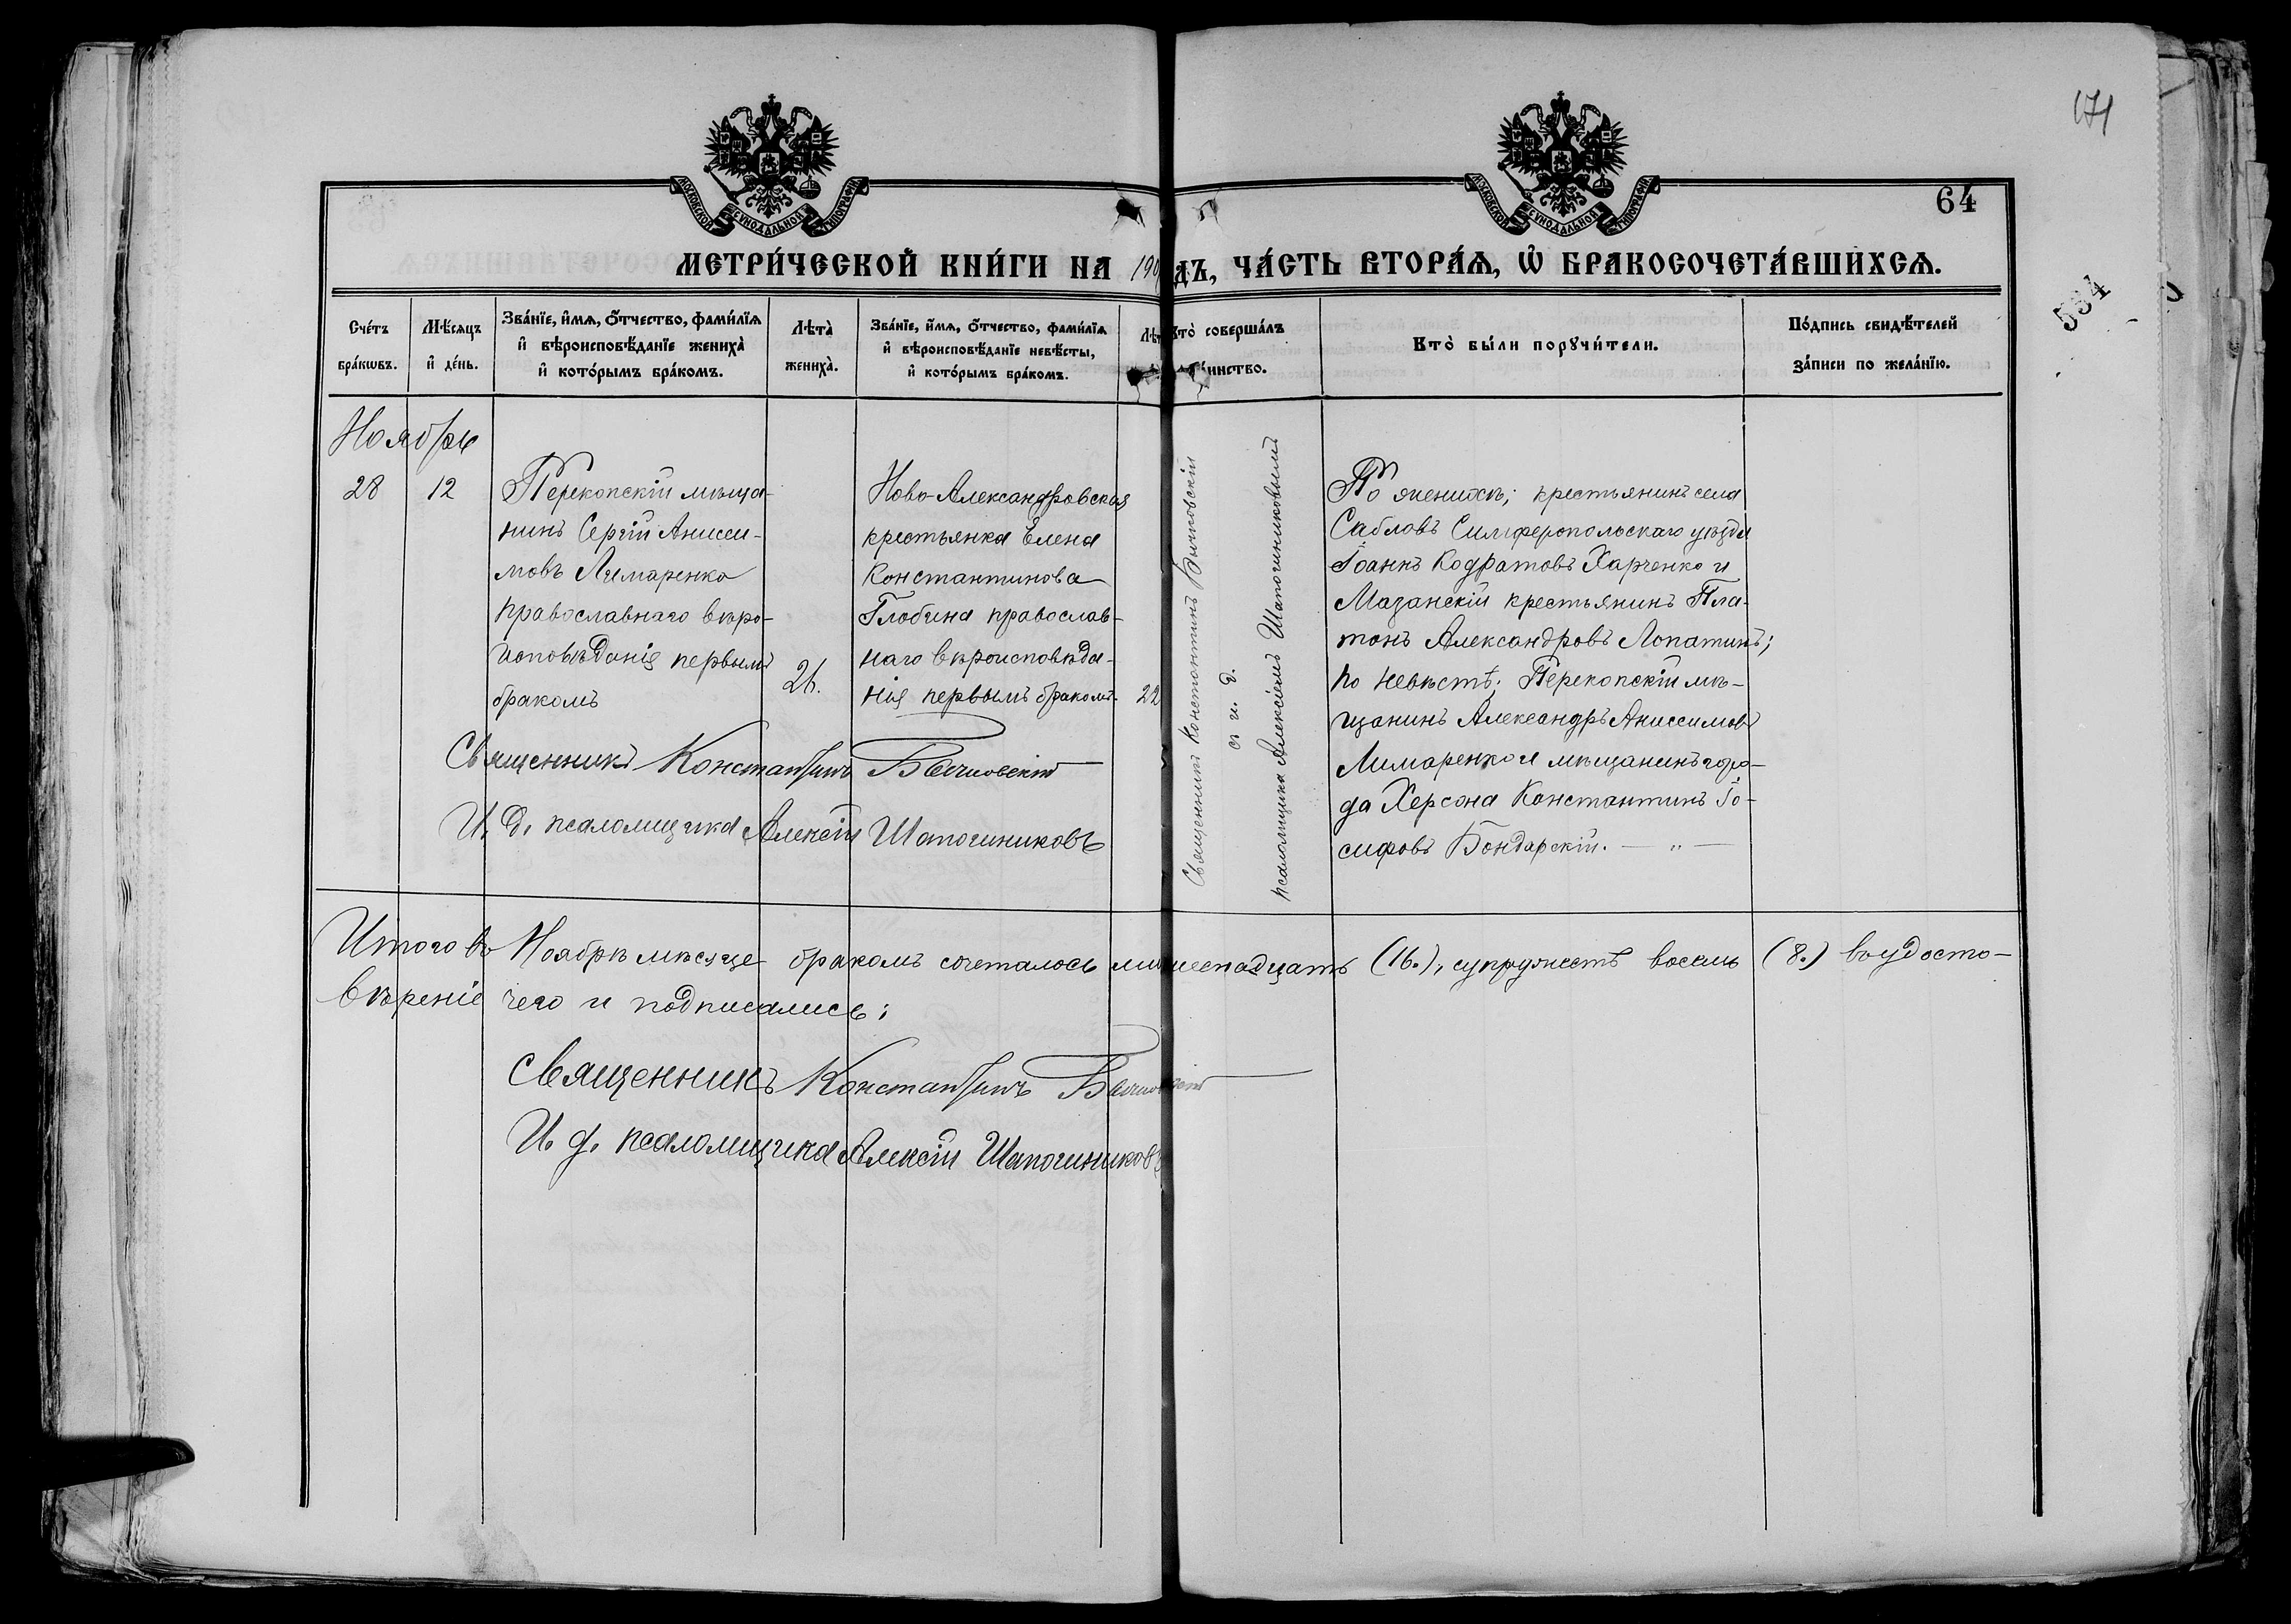 171
МОСКОВСКОЙ СѴНОДАЛЬНОЙ ТИПОГРАФІИ
МОСКОВСКОЙ СѴНОДАЛЬНОЙ ТИПОГРАФІИ
64
МЕТРИ́ЧЕСКОЙ КНИ́ГИ НА 190 ДЪ, ЧА́СТЬ ВТОРА́Ѧ, Ѽ БРАКОСОЧЕТА́ВШИХСѦ.
534
Сче́тъ бра́кѡвъ.
Мѣ́сяцъ и де́нь.
Зва́нїе, и́мѧ, о́тчество, фами́лїѧ и вѣроисповѣ́данїе жениха̀ и кото́рымъ бра́комъ.
Лѣта̀ жениха̀.
Зва́нїе, и́мѧ, о́тчество, фами́лїѧ и вѣроисповѣ́данїе невѣ́сты, и кото́рымъ бра́комъ.
Лѣт
Кто̀ соверша́лъ
инство.
Кто̀ бы́ли порꙋчи́тели.
По́дпись свидѣ́телей за́писи по жела́нїю.
Ноябрь
28
12
Перекопскій мѣща-
нинъ Сергій Анисси-
мовъ Лимаренко
православнаго вѣро-
исповѣданія первымъ
бракомъ
26.
Ново-Александровская
крестьянка Елена
Константинова
Глобина православ-
наго вѣроисповѣда-
нія первымъ бракомъ.
22
Священникъ Константинъ
съ и. д.
псаломщика Алексіемъ Шапочниковымъ
По женихѣ; крестьянинъ села
Сабловъ Симферопольскаго уѣзда
Іоаннъ Кодратовъ Харченко и
Мазанскій крестьянинъ Пла-
тонъ Александровъ Лопатинъ;
по невѣстѣ; Перекопскій мѣ-
щанинъ Александръ Аниссимовъ
Лимаренко и мѣщанинъ горо-
да Херсона Константинъ Іо-
сифовъ Бондарскій. — „ —
Священникъ Константинъ
И. д. псаломщика Алексій Шапочниковъ
Итого въ Ноябрѣ мѣсяце бракомъ сочеталось шеснадцать (16.), супружествъ восемь (8.) въ удосто-
вѣреніе чего и подписались:
Священникъ Константинъ
И. д. псаломщика Алексій Шапочниковъ